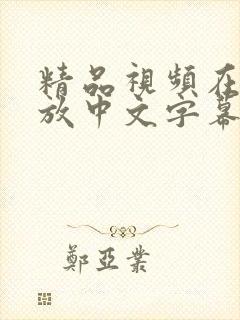 精品視頻在
放中文字幕
鄭亞業